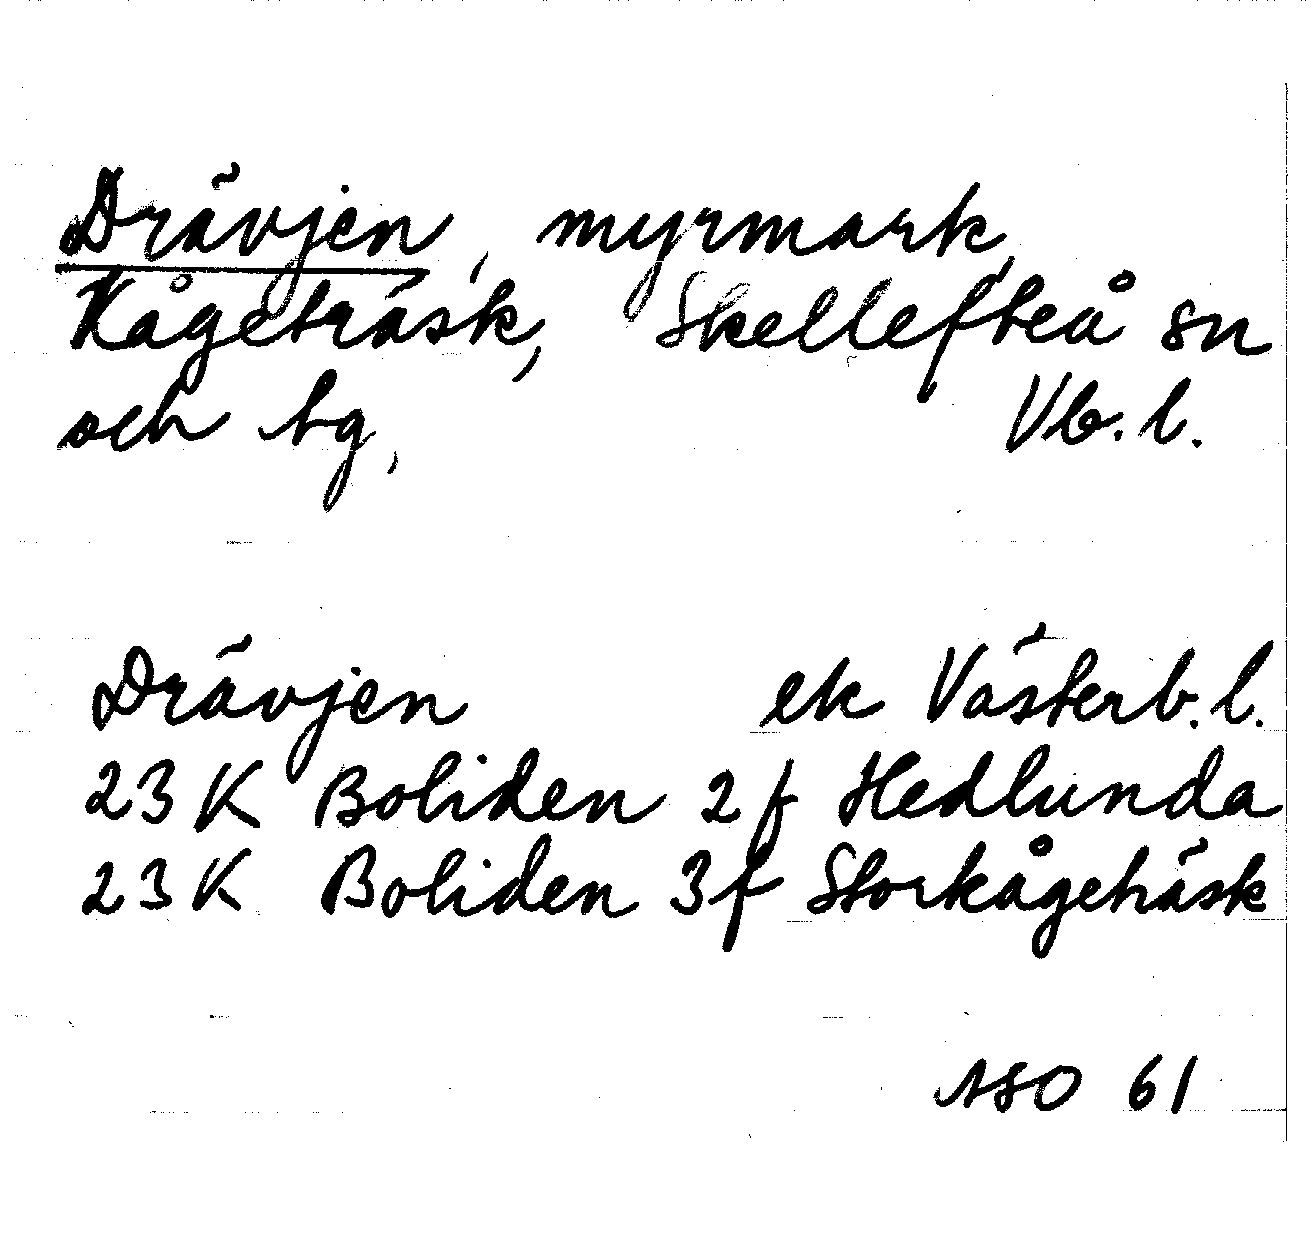 Drävjen, myrmark,
Kågeträsk, Skellefteå sn
och tg, Vb. l.
Drävjen ek Västerb. l.
23 K Boliden 2 f Hedlunda
23 K Boliden 3 f Storkågeträsk
ASO 61